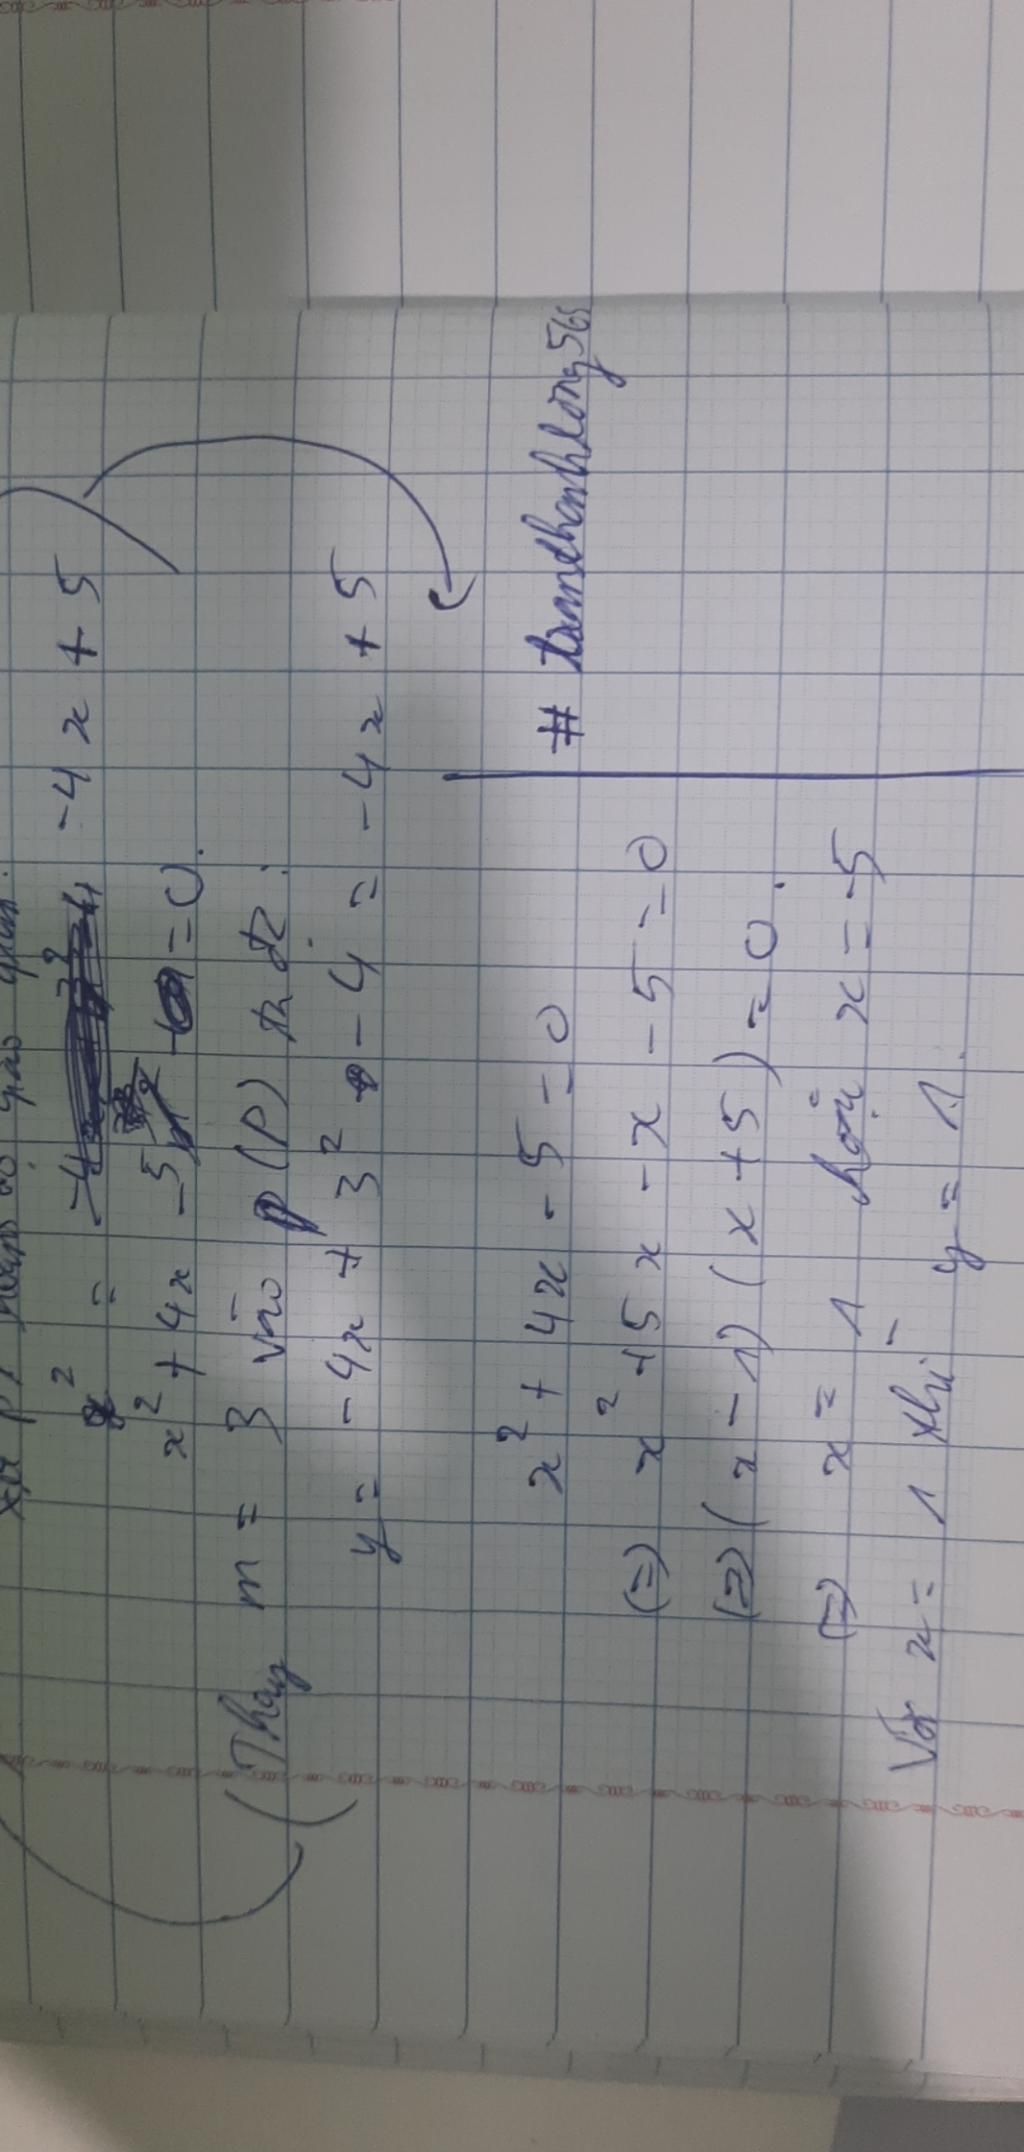 xét pt hoành độ giao điểm:
x² = -4x + 5
x² + 4x - 5 = 0.
(Thay m = 3 vào (P) ta đc:
y = -4x + 3² - 4 = -4x + 5
x² + 4x - 5 = 0
(=) x² + 5x - x - 5 = 0
(=) (x - 1) (x + 5) = 0.
(=) x = 1 hoặc x = -5
Với x = 1 thì y = 1.
# tranthanhlong56s